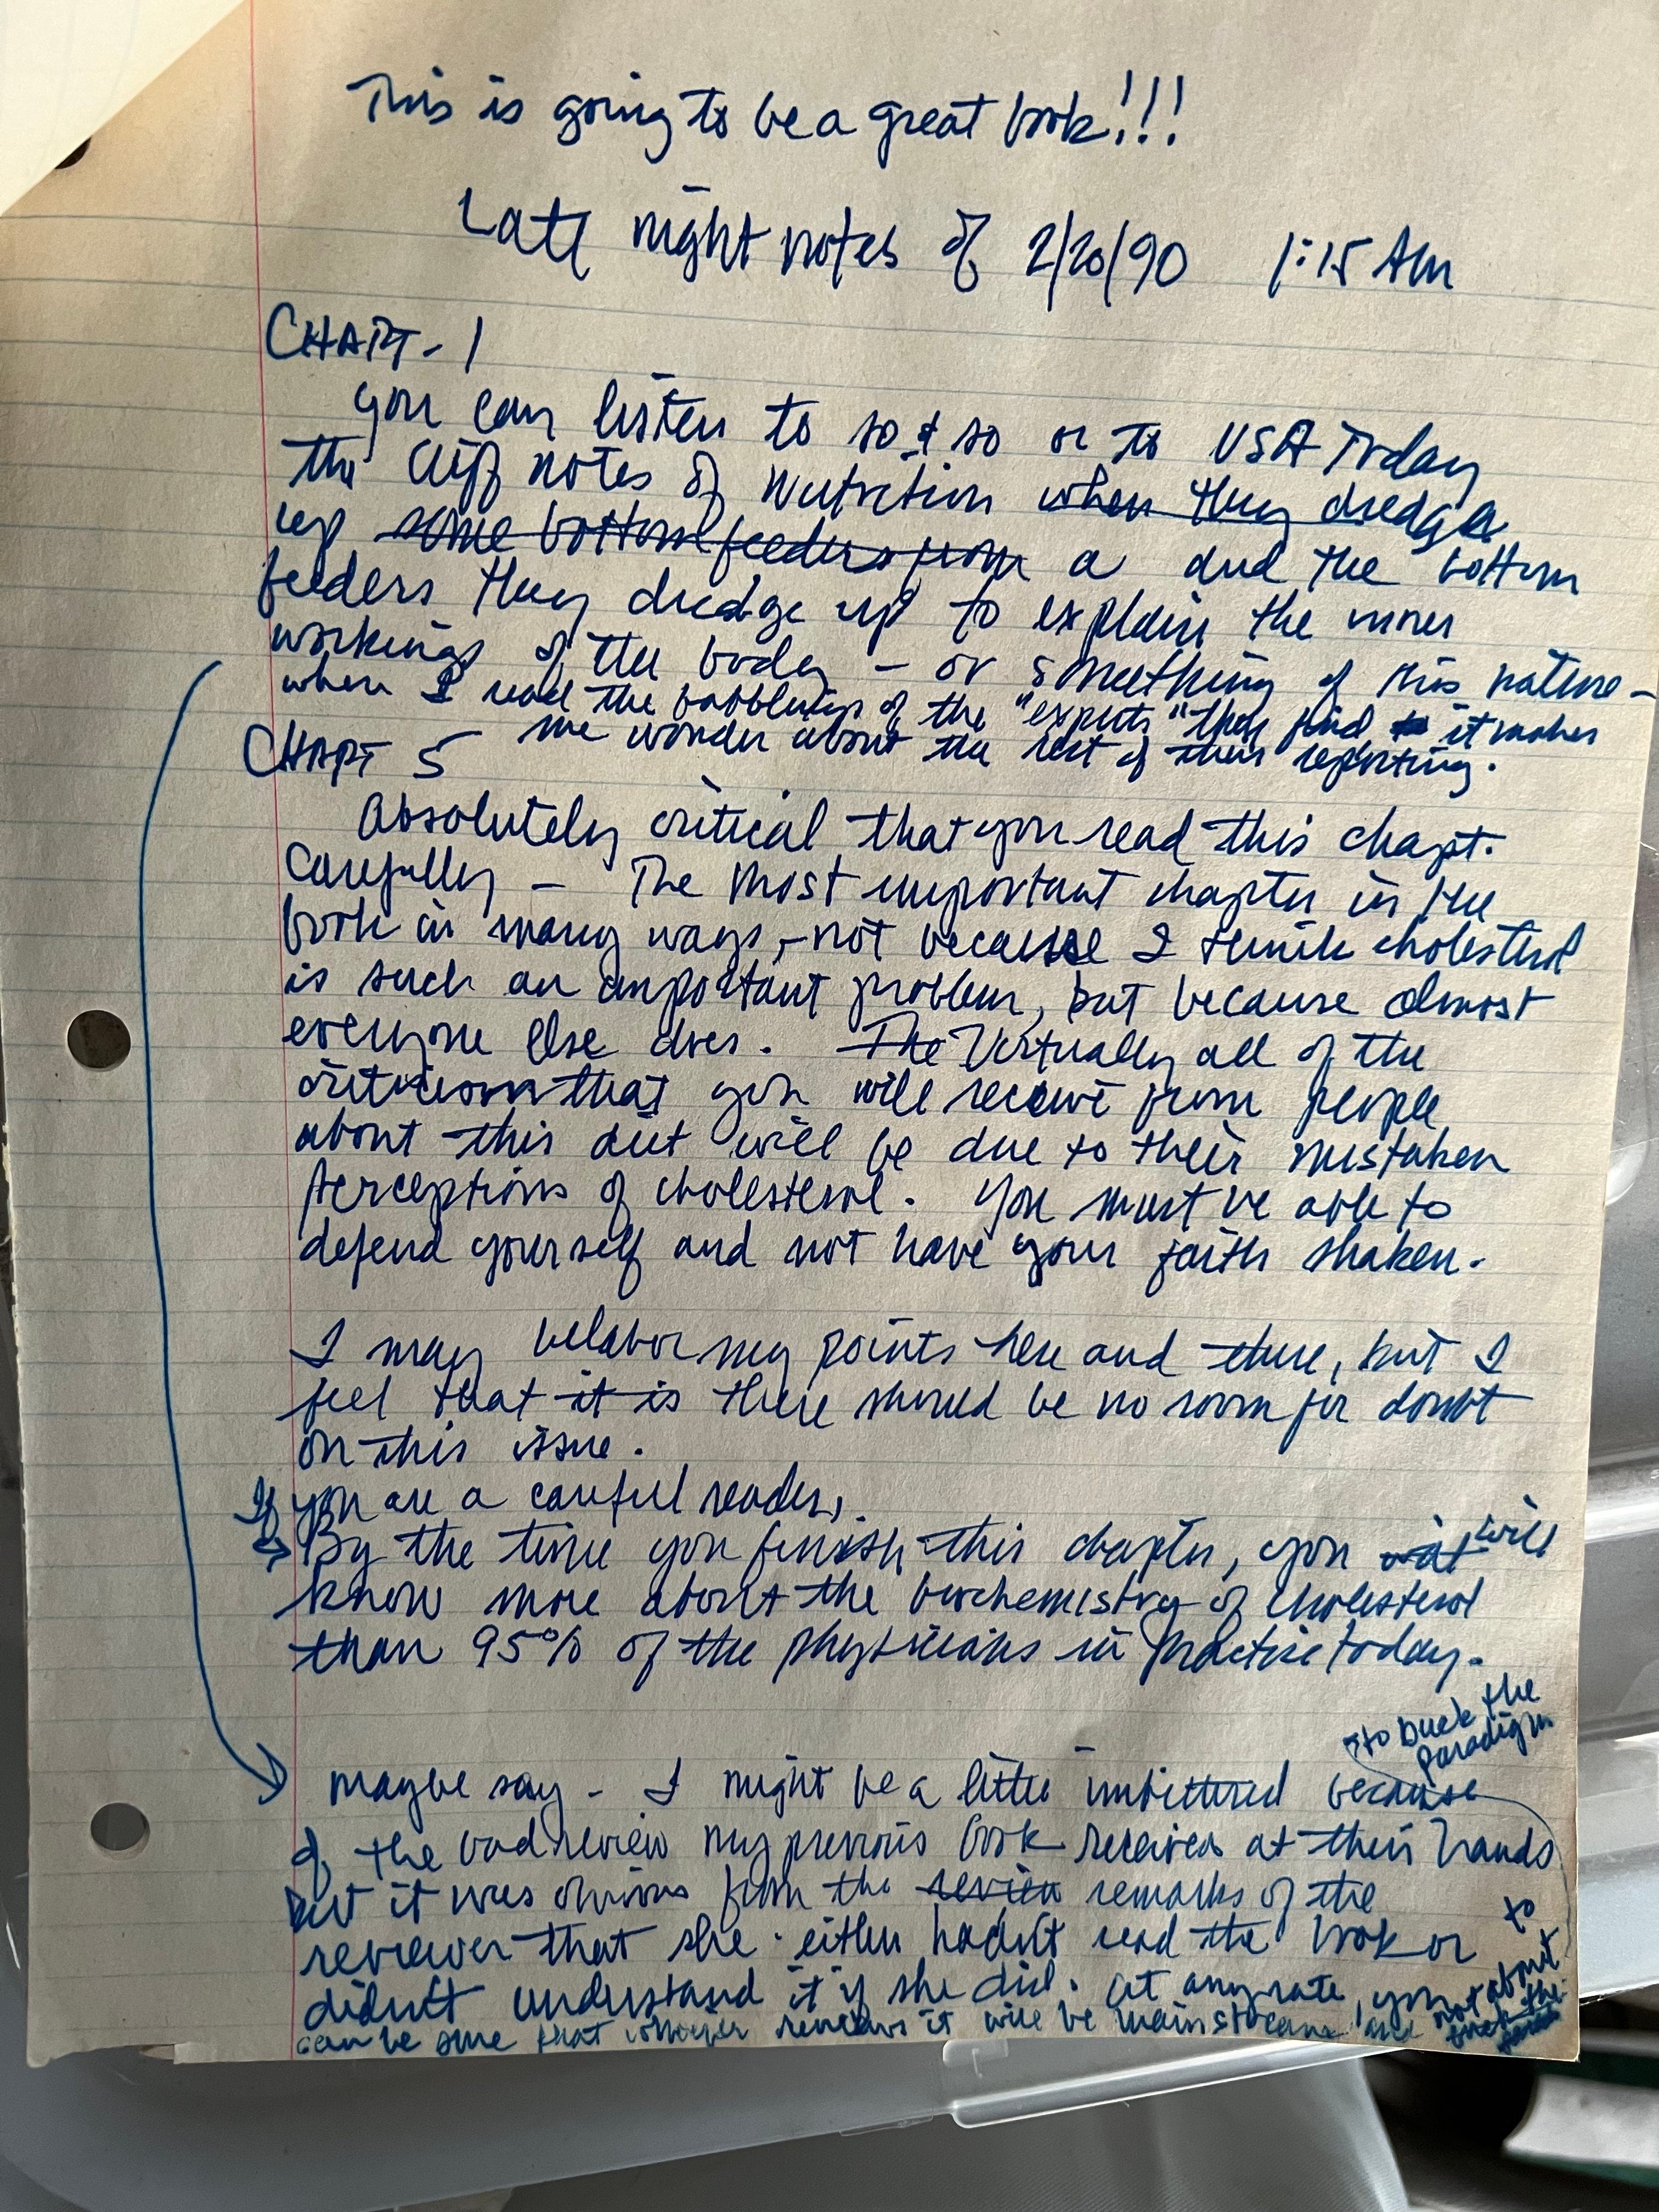 This is going to be a great book!!!
Late night notes of 2/20/90 1:15 AM
CHAPT-1
you can listen to so & so or to USA Today
the Cliff notes of Nutrition when they dredge
up some bottom feeders from a and the bottom
feeders they dredge up to explain the inner
workings of the body - or something of this nature -
when I read the babblings of the "experts" they find it makes
me wonder about the rest of their reporting.
CHAPT 5
Absolutely critical that you read this chapt.
carefully - The most important chapter in the
book in many ways, - not because I think cholesterol
is such an important problem, but because almost
everyone else does. The Virtually all of the
criticism that you will receive from people
about this diet will be due to their mistaken
perceptions of cholesterol. You must be able to
defend yourself and not have your faith shaken.
I may belabor my points here and there, but I
feel that it is there should be no room for doubt
on this issue.
If you are a careful reader,
By the time you finish this chapter, you will
know more about the biochemistry of cholesterol
than 95% of the physicians in practice today.
to buck the
paradigm
maybe say - I might be a little imbittered because
of the bad review my previous book received at their hands
but it was obvious from the review remarks of the
reviewer that she either hadn't read the book or
didn't understand it if she did. At any rate, you
can be sure that whoever reviews it will be mainstream and
not about
to
buck the